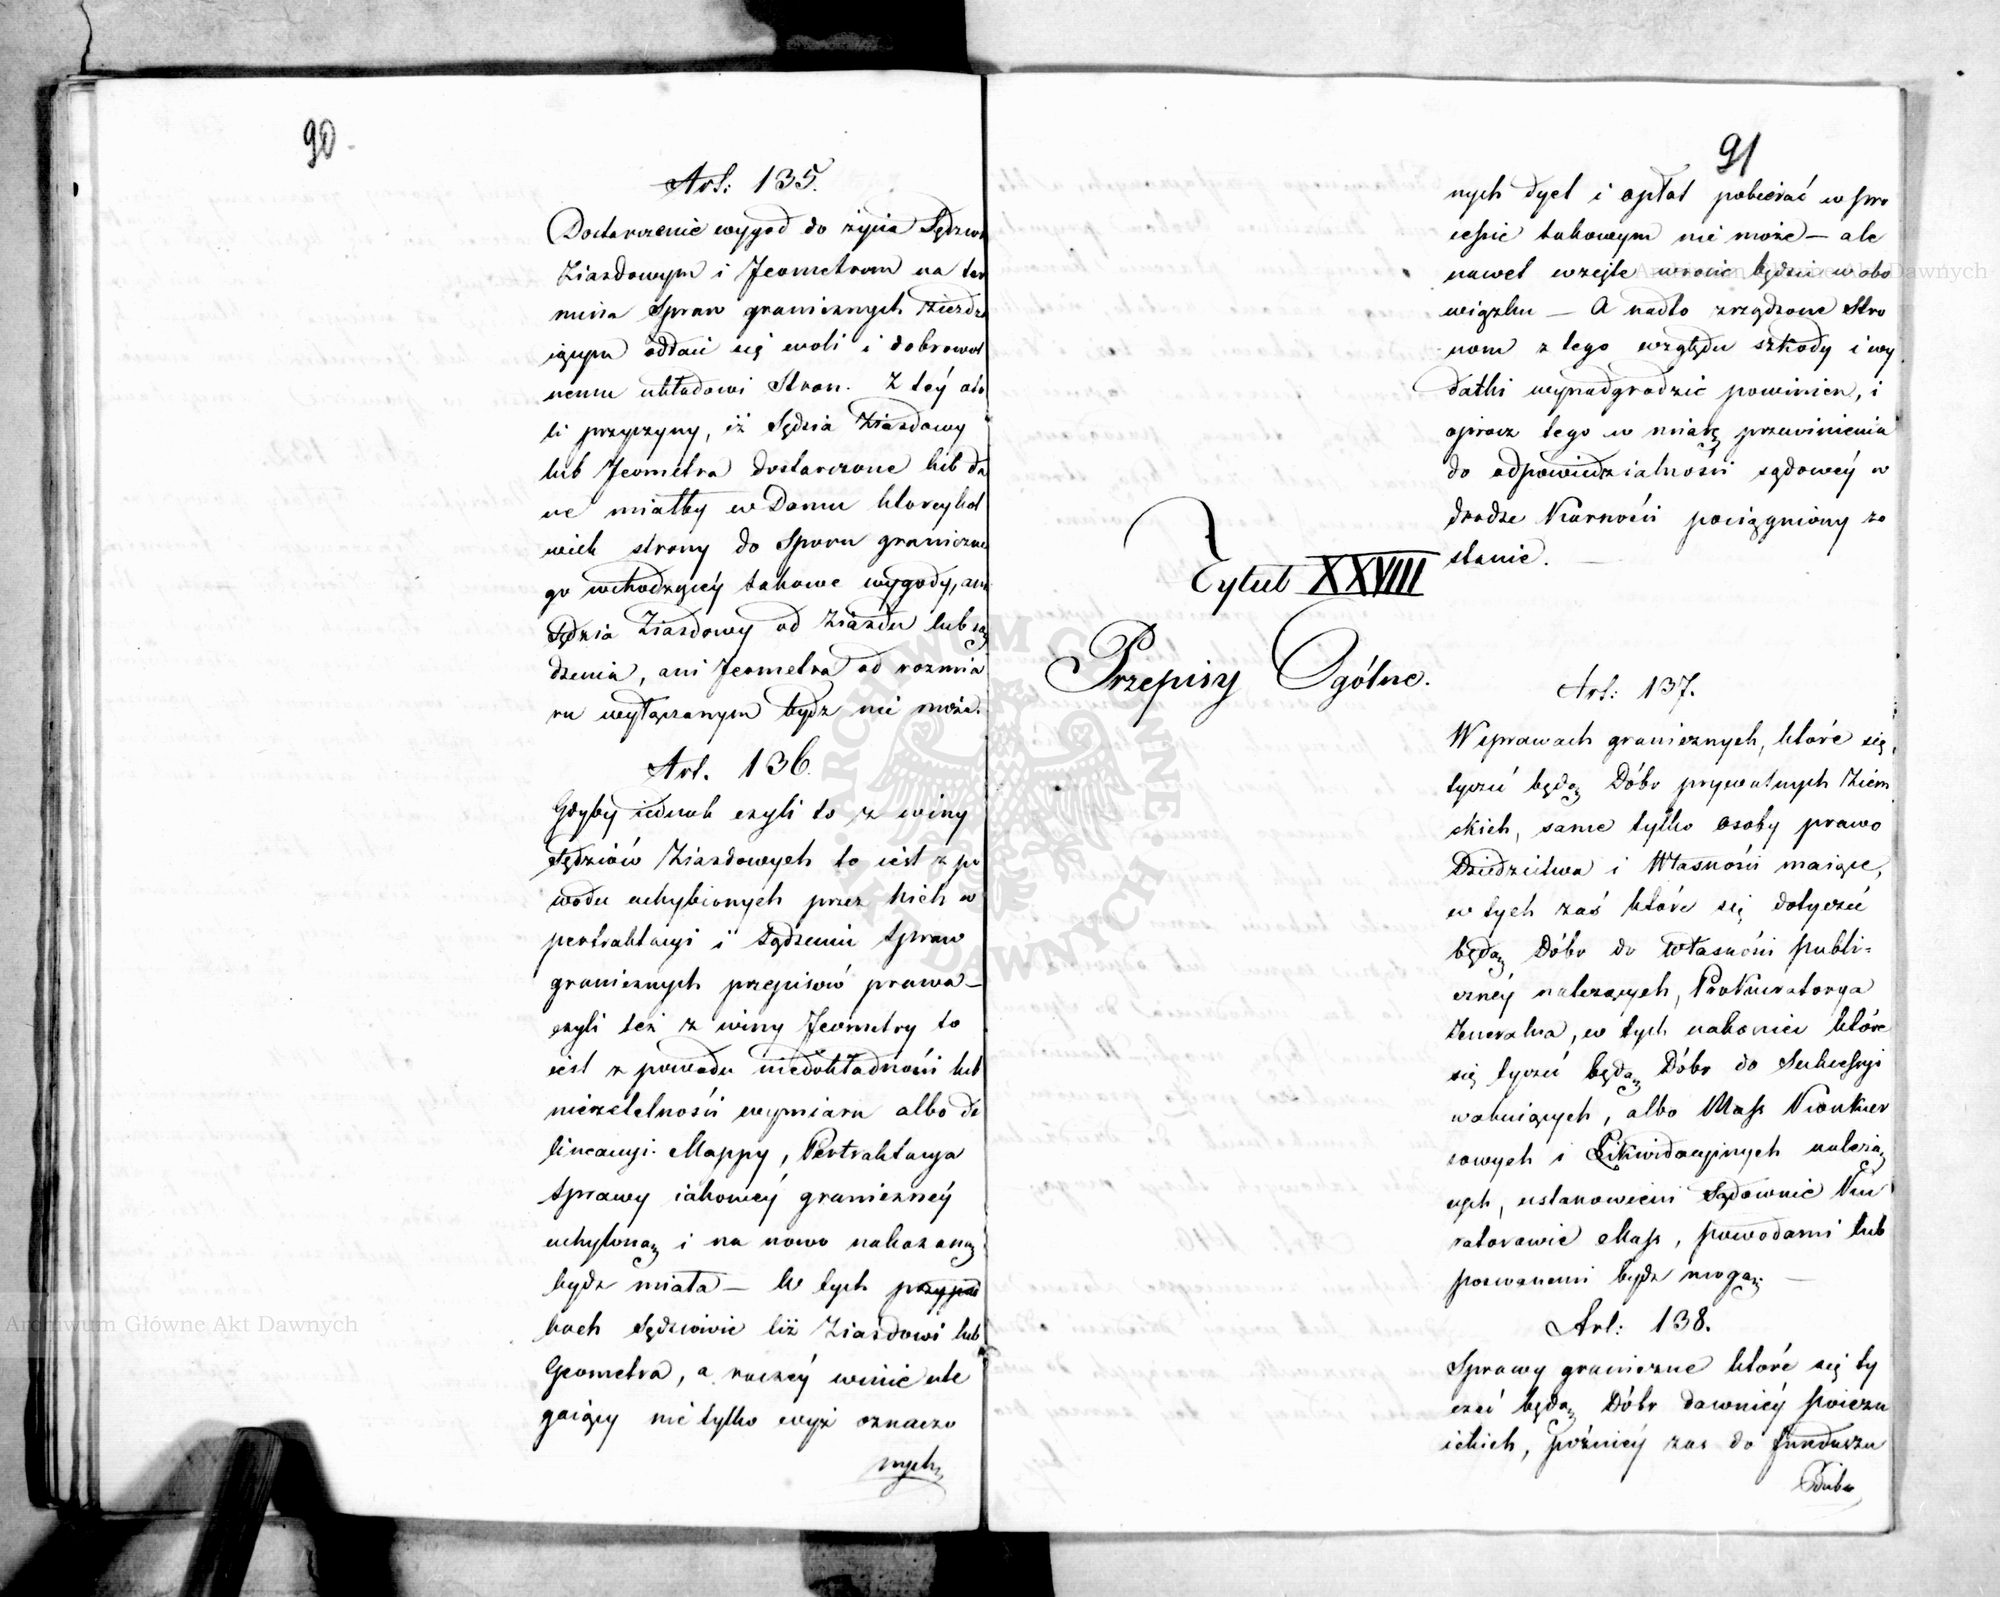 90
Art: 135.
Dostarczenie wygod do życia Sędziom
Ziazdowym i Jeometrom na ter
mina Spraw granicznych zieżdża
iącym oddaie się woli i dobrowol
nemu układowi Stron. Z tey oko
li przyczyny, iż Sędzia Ziazdowy
lub Jeometra dostarczone lub da
ne miałby w Domu któreykol
wiek strony do Sporu graniczne
go wchodzącéy takowe wygody, ani
Sędzia Ziazdowy od Ziazdu lub są
dzenia, ani Jeometra od rozmia
ru wyłączanym bydz nie może.
Art. 136.
Gdyby iednak czyli to z winy
Sędziów Ziazdowych to iest z po
wodu uchybionych przez nich w
pertraktacyi i sądzeniu Spraw
granicznych przepisów prawa —
czyli też z winy Jeometry to
iest z powodu niedokładności lub
nierzetelności wymiaru albo de
lineacyi Mappy, Pertraktacya
Sprawy iakowéy granicznéy
uchyloną i na nowo nakazaną
bydz miała — W tych przypad
kach Sędziowie tiż Ziazdowi lub
Geometra, a raczéy winie ule
gaiący nie tylko wyż oznaczo
nych
91
nych dyet i opłat pobierać w pro
cessie takowym nie może — ale
nawet wzięte wrócić będzie w obo
wiązku — A nadto zrządzone Stro
nom z tego względu szkody i wy
datki wynadgrodzić powinien, i
oprócz tego w miarę przewinienia
do odpowiedzialności sądowéy w
drodze Karności pociągniony zo
stanie.
Tytuł XXVIII
Przepisy Ogólne.
Art: 137.
W sprawach granicznych, które się
tyczeć będą Dóbr prywatnych Ziem
skich, same tylko osoby prawo
Dziedzictwa i Własności maiące,
w tych zaś które się dotyczeć
będą Dóbr do własności publi=
cznéy należących, Prokuratorya
Jeneralna, w tych nakoniec które
się tyczeć będą Dóbr do Sukcessyi
wakuiących, albo Mass Konkur
sowych i Likwidacyinych należą
cych, ustanowieni Sądownie Ku
ratorowie Mass, powodami lub
pozwanemi bydz mogą. —
Art: 138.
Sprawy graniczne które się ty
czeć będą Dóbr dawniéy poiezu
ickich, poźniéy zas do funduszu
Edukac